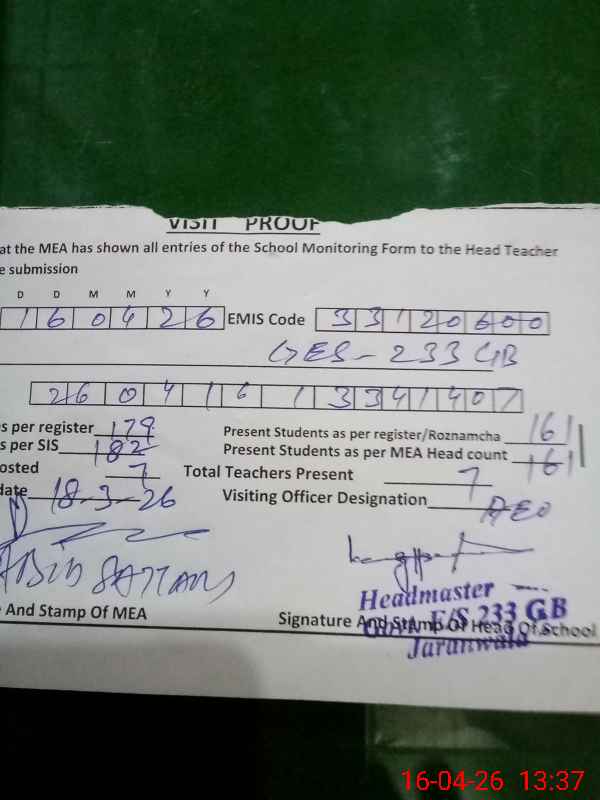 VISIT PROOF
at the MEA has shown all entries of the School Monitoring Form to the Head Teacher
e submission
D D M M Y Y
1 6 0 4 2 6 EMIS Code 3 3 1 2 0 6 0 0
GES - 233 GB
2 6 0 4 1 6 1 3 3 4 1 4 0 7
s per register 179 Present Students as per register/Roznamcha 161
s per SIS 182 Present Students as per MEA Head count 161
osted 7 Total Teachers Present 7
date 18-3-26 Visiting Officer Designation AEO
Headmaster
Govt. E/S 233 GB
Jaranwala
And Stamp Of MEA Signature And Stamp Of Head Of School
16-04-26 13:37